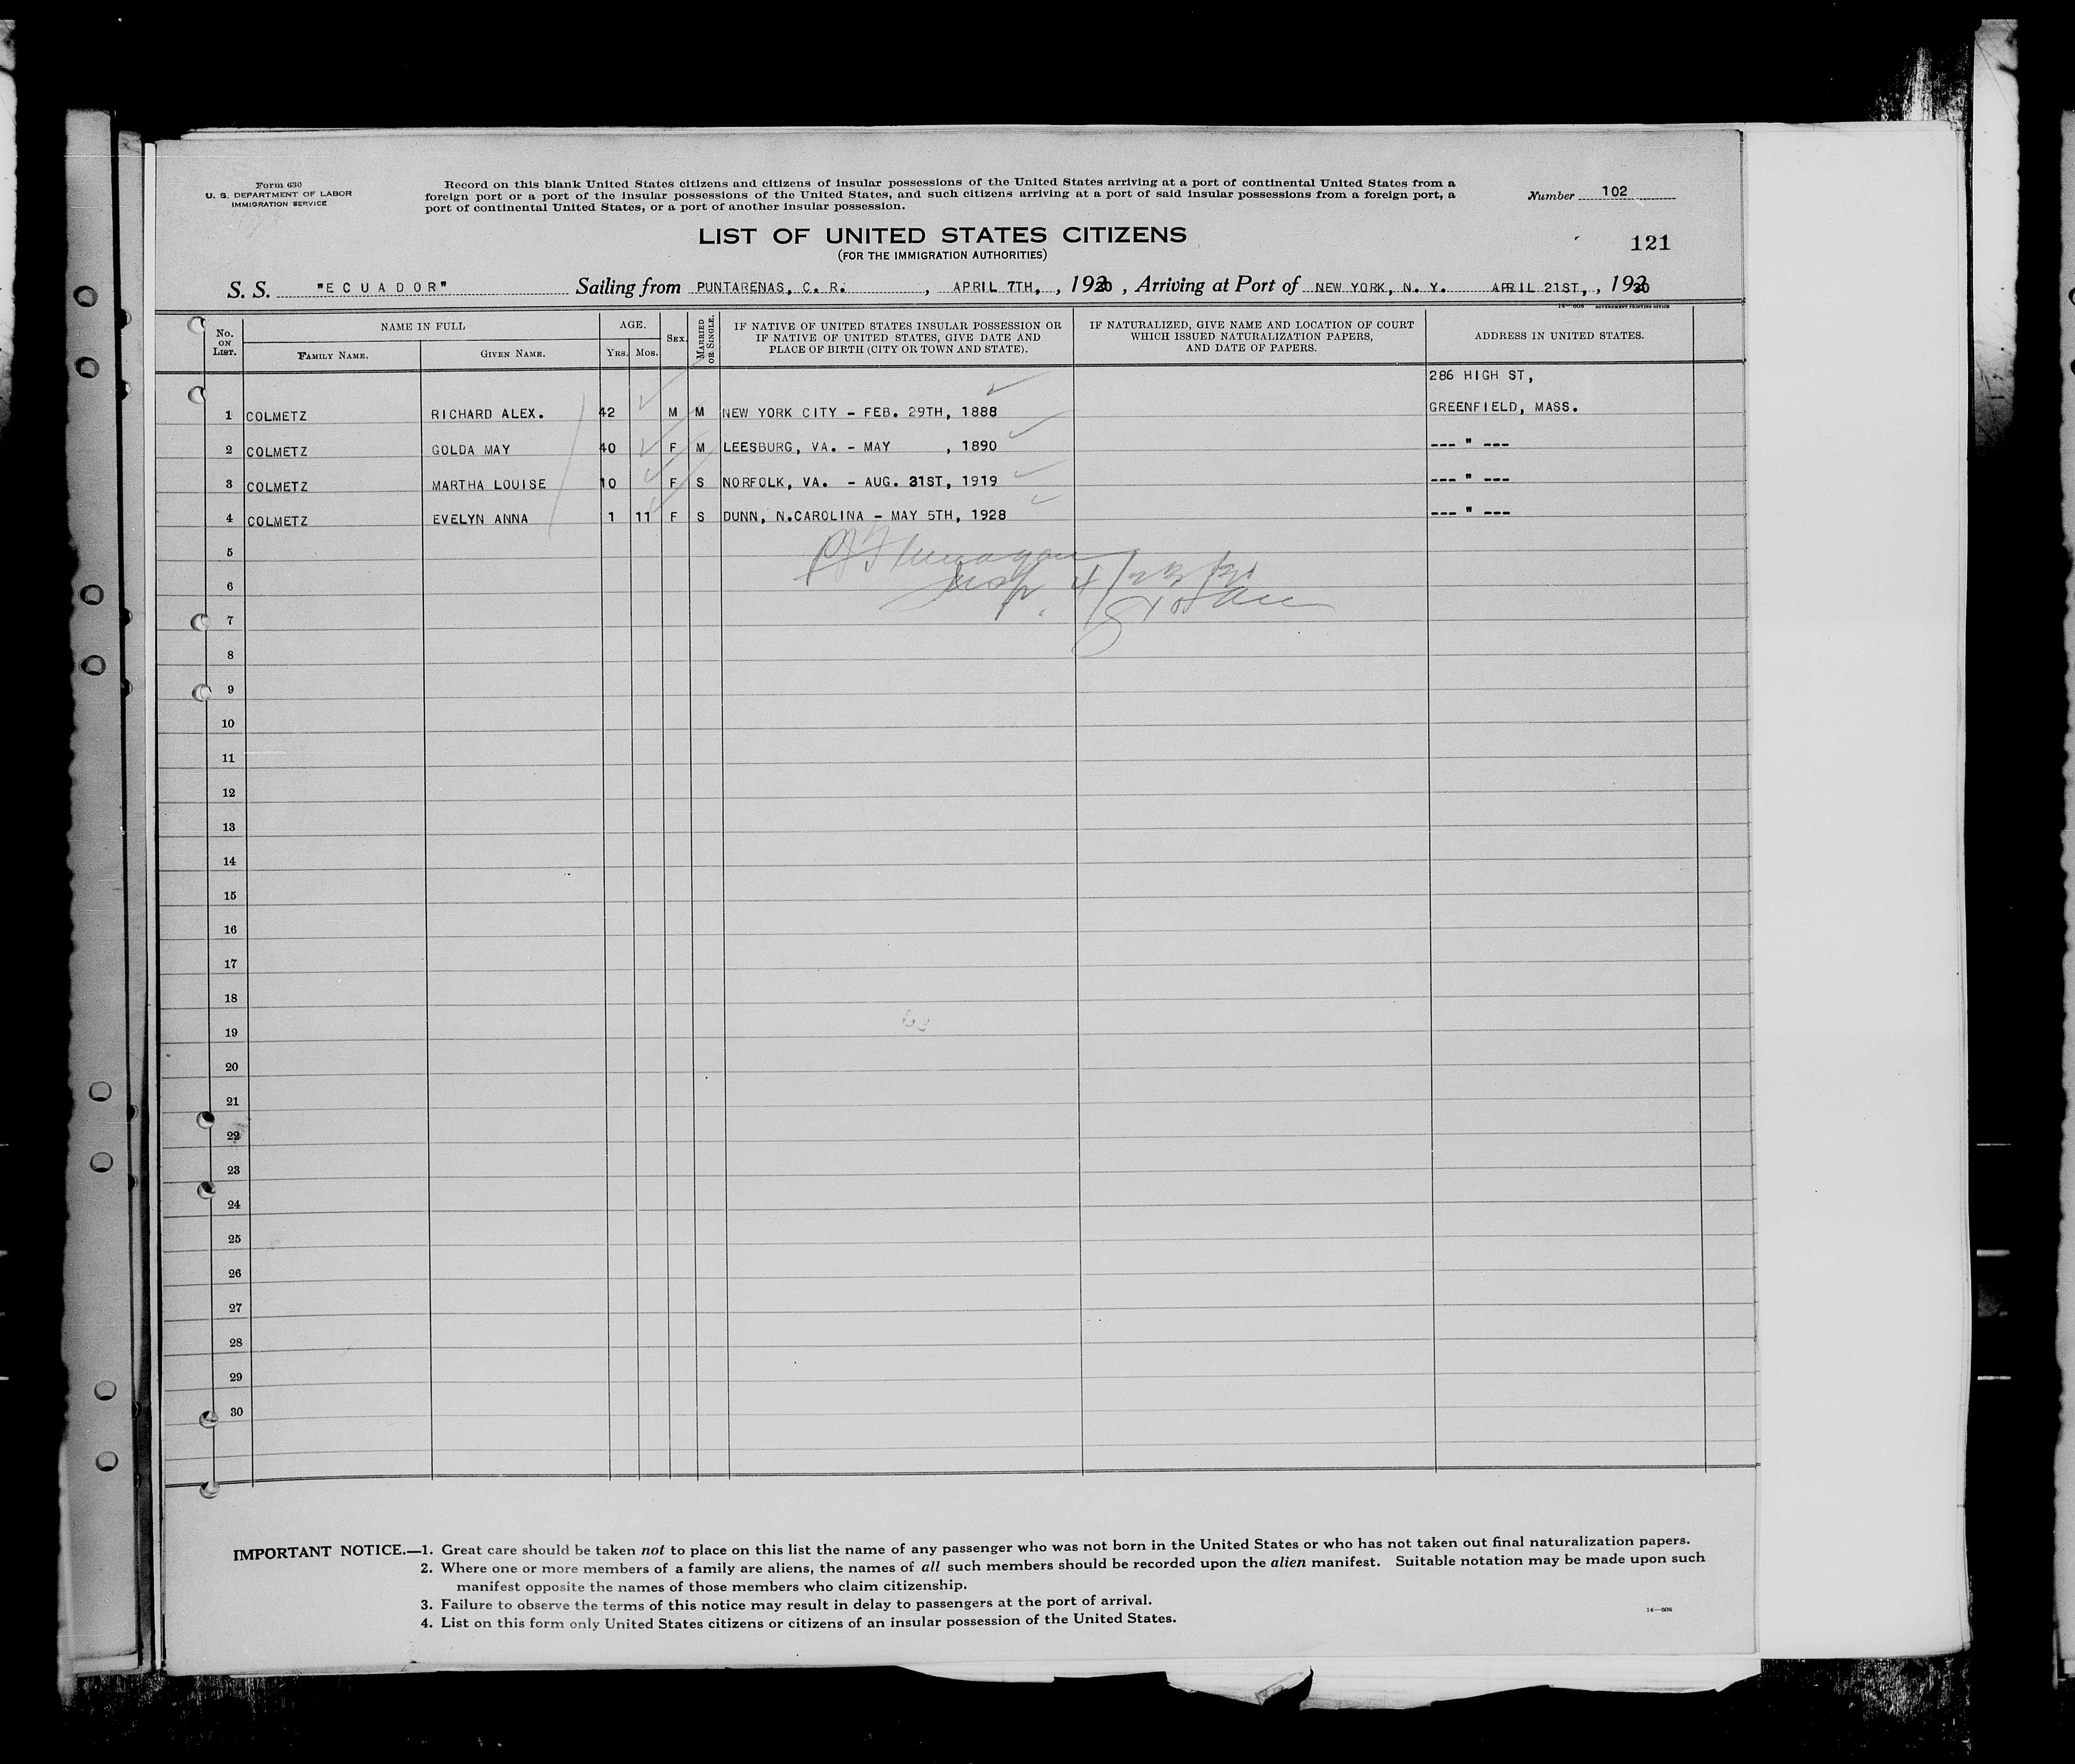 Form 630
U. S. DEPARTMENT OF LABOR
IMMIGRATION SERVICE
Record on this blank United States citizens and citizens of insular possessions of the United States arriving at a port of continental United States from a
foreign port or a port of the insular possessions of the United States, and such citizens arriving at a port of said insular possessions from a foreign port, a
port of continental United States, or a port of another insular possession.
Number 102
LIST OF UNITED STATES CITIZENS
(FOR THE IMMIGRATION AUTHORITIES)
121
S. S. "ECUADOR" Sailing from PUNTARENAS, C. R. , APRIL 7TH, , 1930 , Arriving at Port of NEW YORK, N. Y. APRIL 21ST, , 1930
14—608 GOVERNMENT PRINTING OFFICE
No. ON LIST. NAME IN FULL AGE. SEX. MARRIED OR SINGLE. IF NATIVE OF UNITED STATES INSULAR POSSESSION OR IF NATIVE OF UNITED STATES, GIVE DATE AND PLACE OF BIRTH (CITY OR TOWN AND STATE). IF NATURALIZED, GIVE NAME AND LOCATION OF COURT WHICH ISSUED NATURALIZATION PAPERS, AND DATE OF PAPERS. ADDRESS IN UNITED STATES.
FAMILY NAME. GIVEN NAME. YRS. MOS.
286 HIGH ST,
1 COLMETZ RICHARD ALEX. 42 M M NEW YORK CITY - FEB. 29TH, 1888 GREENFIELD, MASS.
2 COLMETZ GOLDA MAY 40 F M LEESBURG, VA. - MAY , 1890 --- " ---
3 COLMETZ MARTHA LOUISE 10 F S NORFOLK, VA. - AUG. 31ST, 1919 --- " ---
4 COLMETZ EVELYN ANNA 1 11 F S DUNN, N.CAROLINA - MAY 5TH, 1928 --- " ---
5
6
7
8
9
10
11
12
13
14
15
16
17
18
19
20
21
22
23
24
25
26
27
28
29
30
IMPORTANT NOTICE.—1. Great care should be taken not to place on this list the name of any passenger who was not born in the United States or who has not taken out final naturalization papers.
2. Where one or more members of a family are aliens, the names of all such members should be recorded upon the alien manifest. Suitable notation may be made upon such
manifest opposite the names of those members who claim citizenship.
3. Failure to observe the terms of this notice may result in delay to passengers at the port of arrival.
4. List on this form only United States citizens or citizens of an insular possession of the United States.
14—608